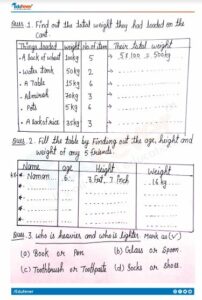 Edufever
Ques. 1. Find out the total weight they had loaded on the
cart.
Things loaded weight No. of item Their total weight
• A sack of wheat 100kg 5 → 5×100 = 500kg
• Water tank 50kg 2 →
• A Table 15kg 6 →
• Almirah 70kg 4 →
• Pots 5kg 6 →
• A sack of rice 35kg 3 →
Ques. 2. Fill the table by Finding out the age, height and
weight of any 5 friends.
Name age Height Weight
Naman 6 3 feet, 7 inch 16 kg
Ques. 3. who is heavier and who is lighter. Mark as (✓)
(a) Book or Pen (b) Glass or Spoon.
(c) Toothbrush or Toothpaste (d) Socks or Shoes.
/Edufever